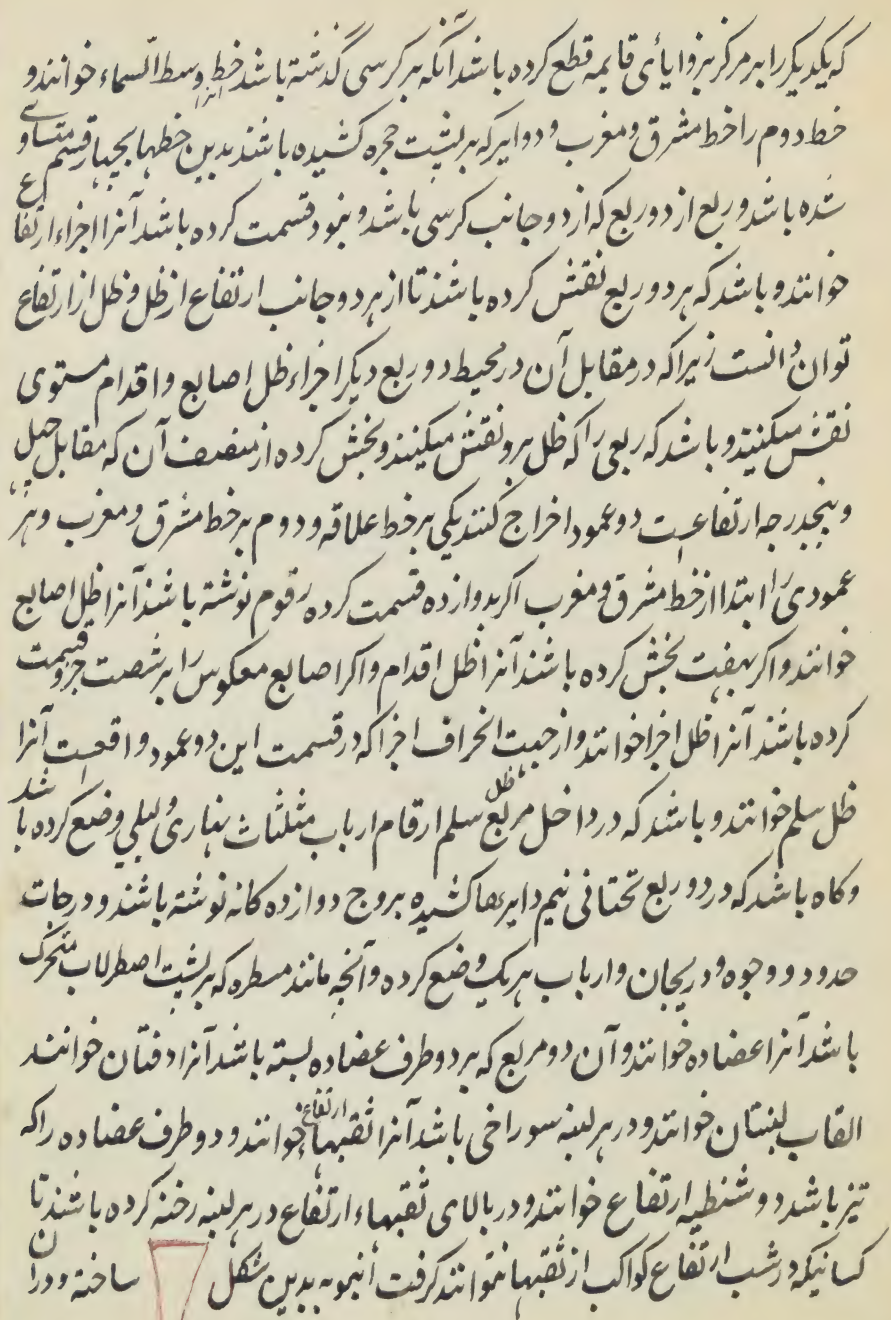 که یکدیکر را بر مرکز بزوایای قایمه قطع کرده باشد آنکه بر کرسی گذشته باشد خط وسط السماء خوانند و
خط دوم را خط مشرق و مغرب و دوایر که بر پشت حجره کشیده باشند بدین خطها بچهار قسم متساوی
شده باشد و ربع از دو ربع که از دو جانب کرسی باشد و بنود قسمت کرده باشد آنرا اجزاء ارتفاع
خوانند و باشد که هر دو ربع نقش کرده باشند تا از هر دو جانب ارتفاع از ظل و ظل از ارتفاع
توان دانست زیرا که در مقابل آن در محیط دو ربع دیکر اجزاء ظل اصابع و اقدام مستوی
نقش میکنند و باشد که ربعی را که ظل برو نقش میکنند و بخش کرده از منصف آن که مقابل چهل
و پنجدرجه ارتفاعست دو عمود اخراج کنند یکی بر خط علاقه و دوم بر خط مشرق و مغرب و هر
عمودی را ابتدا از خط مشرق و مغرب اکر بدوازده قسمت کرده رقوم نوشته باشند آنرا ظل اصابع
خوانند و اکر بهفت بخش کرده باشند آنرا ظل اقدام و اکر اصابع معکوس را بر شصت جزو قسمت
کرده باشند آنرا ظل اجزا خوانند و از جهت انحراف اجزا که در قسمت این دو عمود واقعست آنرا
ظل سلم خوانند و باشد که در داخل مربع ظل سلم ارقام ارباب مثلثات نهاری و لیلی وضع کرده باشد
و کاه باشد که در دو ربع تحتانی نیم دایرها کشیده بروج دوازده کانه نوشته باشند و درجات
حدود و وجوه و دریجان و ارباب هر یک وضع کرده و آنچه مانند مسطره که بر پشت اصطرلاب متحرک
باشد آنرا عضاده خوانند و آن دو مربع که بر دو طرف عضاده بسته باشد آنرا دفتان خوانند
القاب لبنتان خوانند و در هر لبنه سوراخی باشد آنرا ثقبهاء ارتفاع خوانند و دو طرف عضاده را که
تیز باشد دو شظیه ارتفاع خوانند و در بالای ثقبهاء ارتفاع در هر لبنه رخنه کرده باشند تا
کسانیکه در شب ارتفاع کواکب از ثقبها نتوانند کرفت انبوبه بدین شکل ساخته و دران